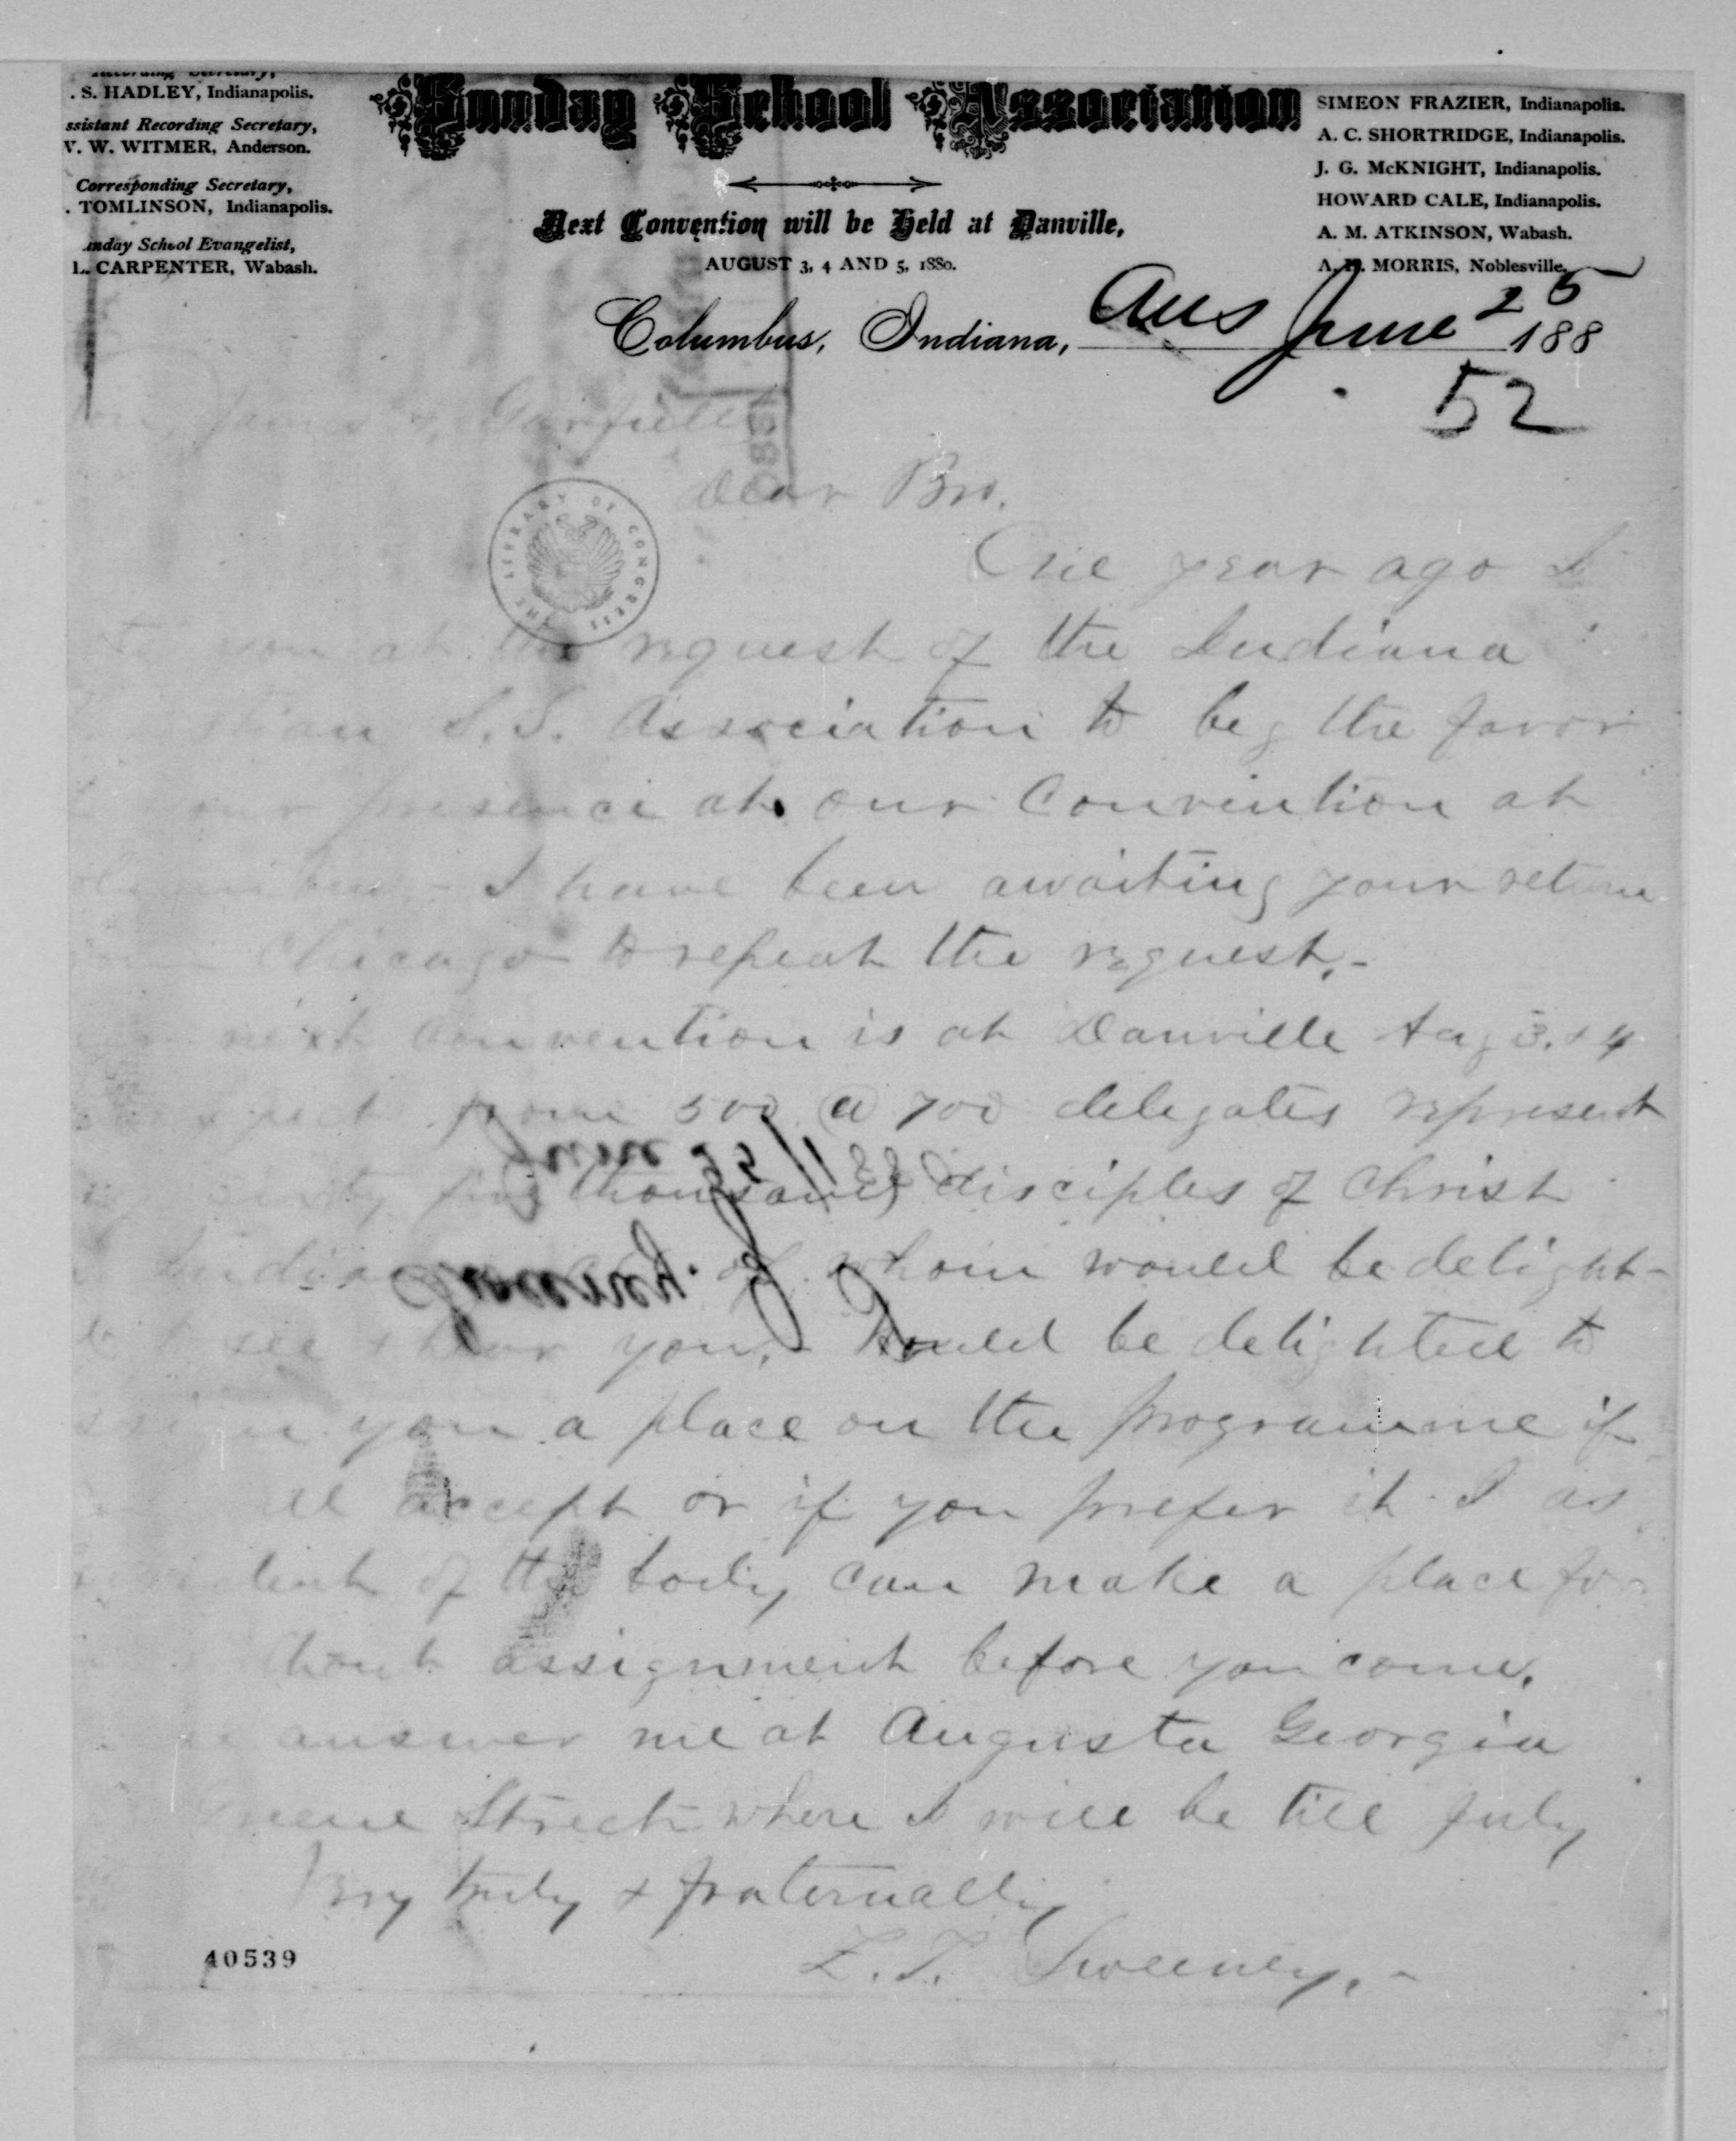 Recording Secretary,
. S. HADLEY, Indianapolis.
ssistant Recording Secretary,
V. W. WITMER, Anderson.
Corresponding Secretary,
. TOMLINSON, Indianapolis.
unday School Evangelist,
L. CARPENTER, Wabash.
Sunday School Association
Next Convention will be Held at Danville,
AUGUST 3, 4 AND 5, 1880.
SIMEON FRAZIER, Indianapolis.
A. C. SHORTRIDGE, Indianapolis.
J. G. McKNIGHT, Indianapolis.
HOWARD CALE, Indianapolis.
A. M. ATKINSON, Wabash.
MORRIS, Noblesville.
Columbus, Indiana, 188
Ans June 25
52
James A. Garfield
Dear Bro.
THE LIBRARY OF CONGRESS
One year ago I
you at the request of the Indiana
S.S. Association to beg the favor
presence at our Convention at
I have been awaiting your return
Chicago to repeat the request.-
next convention is at Danville Aug 3. & 4
from 500 @ 700 delegates represent
five thousand disciples of Christ
of whom would be delight-
to see & hear you,- Would be delighted to
you a place on the programme if
accept or if you prefer it I as
of the body can make a place for
assignment before you come.
answer me at Augusta Georgia
Street where I will be till July
Very truly & fraternally
Z. T. Sweeney.-
40539